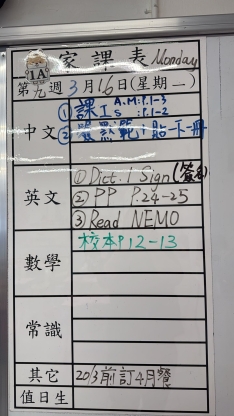 家課表 Monday
1A
第九週 3月16日(星期一)
中文
① 課I A.M: P.1-3
S : P.1-2
② 默範:貼下冊
英文
① Dict. 1 Sign (簽名)
② PP P.24-25
③ Read NEMO
數學
校本P.12-13
常識
其它
20/3前訂4月餐
值日生